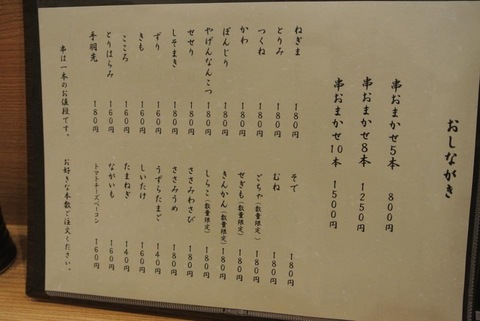 おしながき
串おまかせ5本 800円
串おまかせ8本 1250円
串おまかせ10本 1500円
ねぎま 180円
とりみ 180円
つくね 180円
かわ 180円
ぼんじり 180円
やげんなんこつ 180円
せせり 180円
しそまき 180円
ずり 160円
きも 160円
こころ 160円
とりはらみ 180円
手羽先 180円
串は一本のお値段です。
そで 180円
むね 180円
ごちゃ(数量限定) 180円
せぎも(数量限定) 180円
きんかん(数量限定) 180円
しらこ(数量限定) 180円
ささみわさび 180円
ささみうめ 180円
うずらたまご 140円
しいたけ 160円
たまねぎ 140円
ながいも 160円
トマトチーズベーコン 160円
お好きな本数ご注文ください。